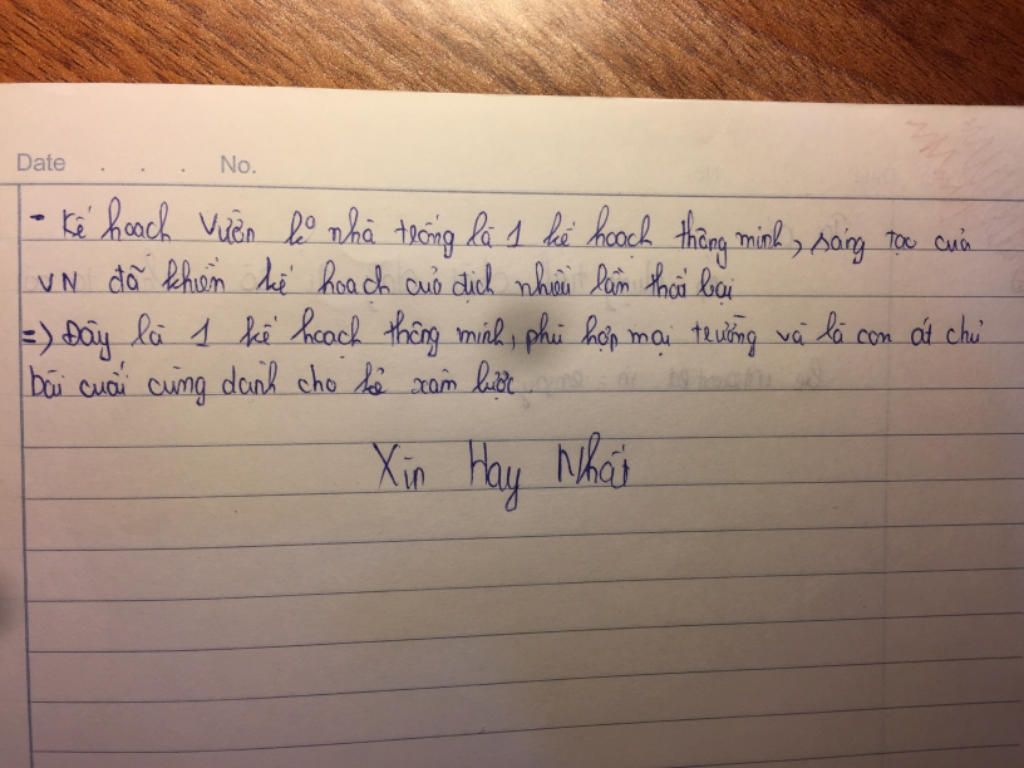 Date . . . No.
- Kế hoạch vườn ko nhà trống là 1 kế hoạch thông minh, sáng tạo của
VN đã khiến kế hoạch của địch nhiều lần thất bại
=) Đây là 1 kế hoạch thông minh, phù hợp mọi trường và là con át chủ
bài cuối cùng dành cho kẻ xâm lược.
Xin Hay Nhất